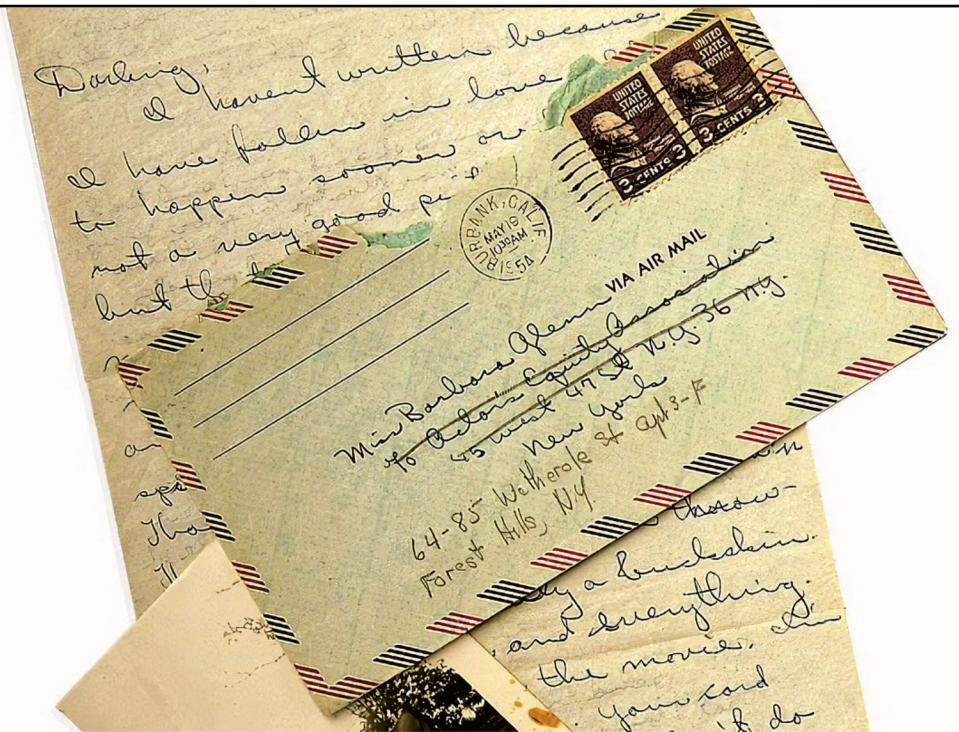 Darling,
I haven't written because
I have fallen in love
to happen sooner or
not a very good pi
but th
UNITED
STATES
POSTAGE
3 CENTS 3
UNITED
STATES
POSTAGE
3 CENTS 3
BURBANK, CALIF.
MAY 19
1030AM
1954
VIA AIR MAIL
Miss Barbara Glenn
c/o Actors Equity Association
45 West 47 St N.Y. 36 N.Y.
New York
64-85 Wetherole St apt 3-F
Forest Hills, NY
an
spe
Tha
throw-
a buckskin
and everything.
the movie. I'm
your card
it do